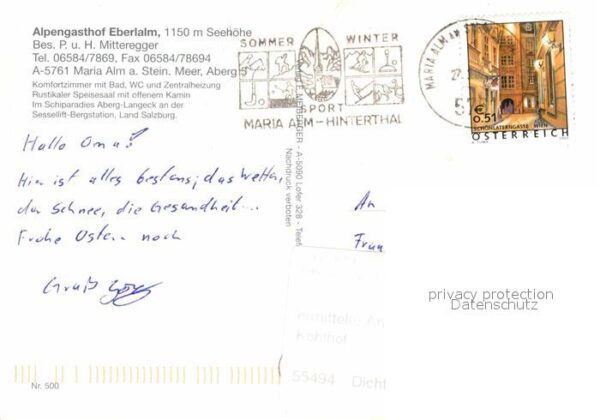 Alpengasthof Eberlalm, 1150 m Seehöhe
Bes. P. u. H. Mitteregger
Tel. 06584/7869, Fax 06584/78694
A-5761 Maria Alm a. Stein. Meer, Aberg 5
Komfortzimmer mit Bad, WC und Zentralheizung
Rustikaler Speisesaal mit offenem Kamin
Im Schiparadies Aberg-Langeck an der
Sessellift-Bergstation, Land Salzburg.
SOMMER WINTER
SPORT
MARIA ALM-HINTERTHAL
MARIA ALM AM
27.
57
€
0.51
SCHÖNLATERNGASSE WIEN
ÖSTERREICH
BERGER - A-5090 Lofer 328 - Telef
Nachdruck verboten
Hallo Oma!
Hier ist alles bestens; das Wetter,
der Schnee, die Gesundheit...
Frohe Ostern noch
Gruß
An
Frau
ermittelte An
Kohlhof
55494 Dicht
privacy protection
Datenschutz
Nr. 500